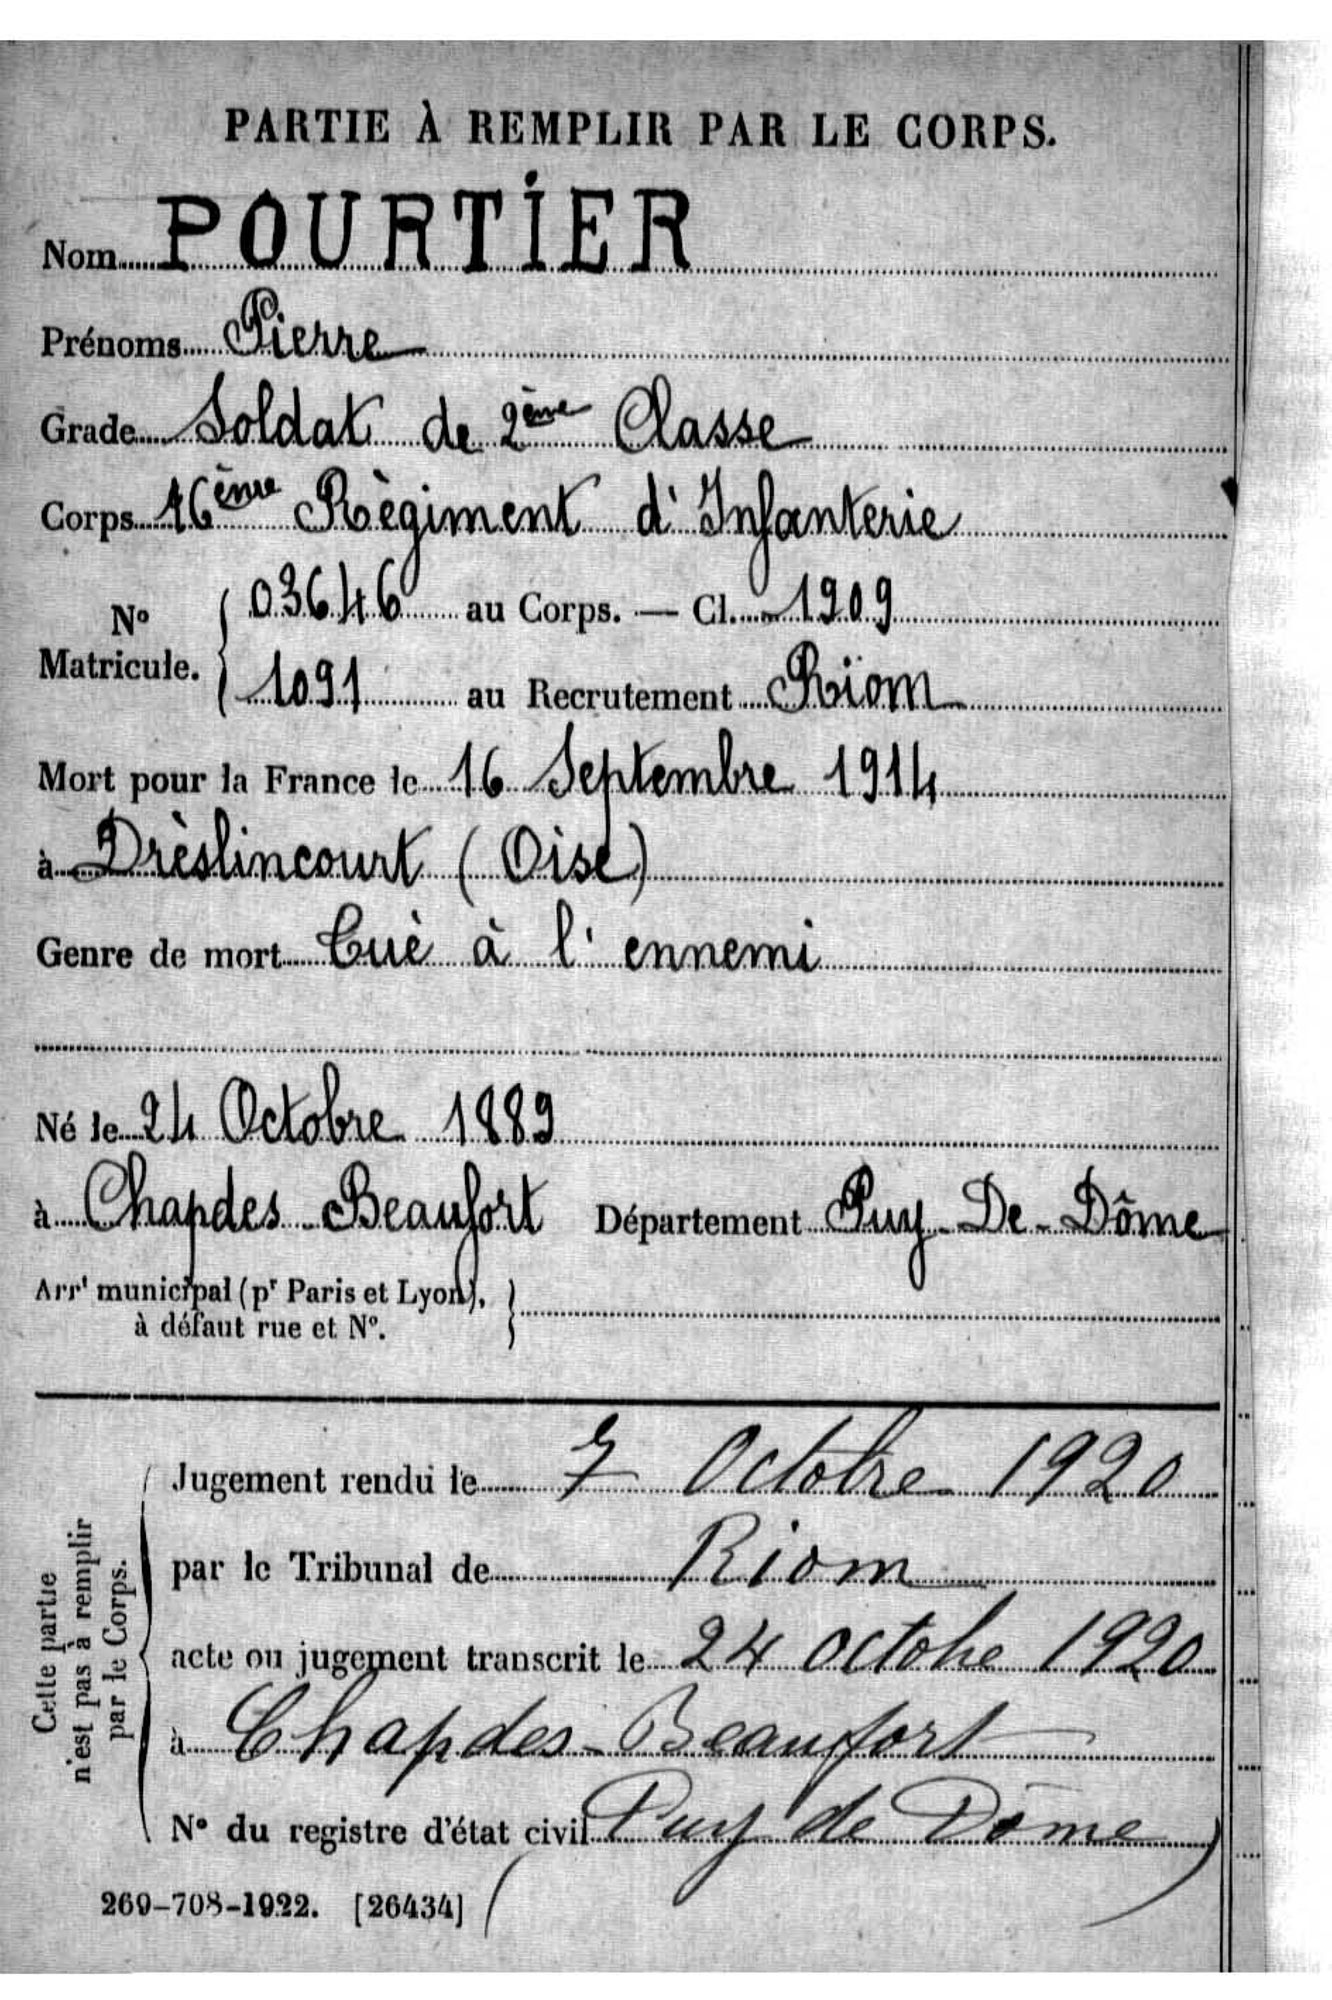 PARTIE À REMPLIR PAR LE CORPS.
Nom POURTIER
Prénoms Pierre
Grade Soldat de 2ème Classe
Corps 16ème Règiment d'Infanterie
N° Matricule. { 03646 au Corps. — Cl. 1909
1091 au Recrutement Riom
Mort pour la France le 16 Septembre 1914
à Drèslincourt (Oise)
Genre de mort Tuè à l'ennemi
Né le 24 Octobre 1889
à Chapdes-Beaufort Département Puy-De-Dôme
Arrt municipal (pr Paris et Lyon), }
à défaut rue et N°.
Cette partie
n'est pas à remplir
par le Corps.
Jugement rendu le 7 Octobre 1920
par le Tribunal de Riom
acte ou jugement transcrit le 24 octobre 1920
à Chapdes-Beaufort
N° du registre d'état civil (Puy de Dôme)
269-708-1922. [26434]